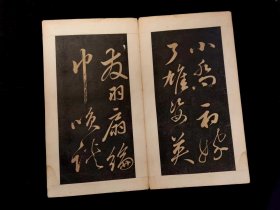 小喬初嫁
了雄姿英
發羽扇綸
巾咲談